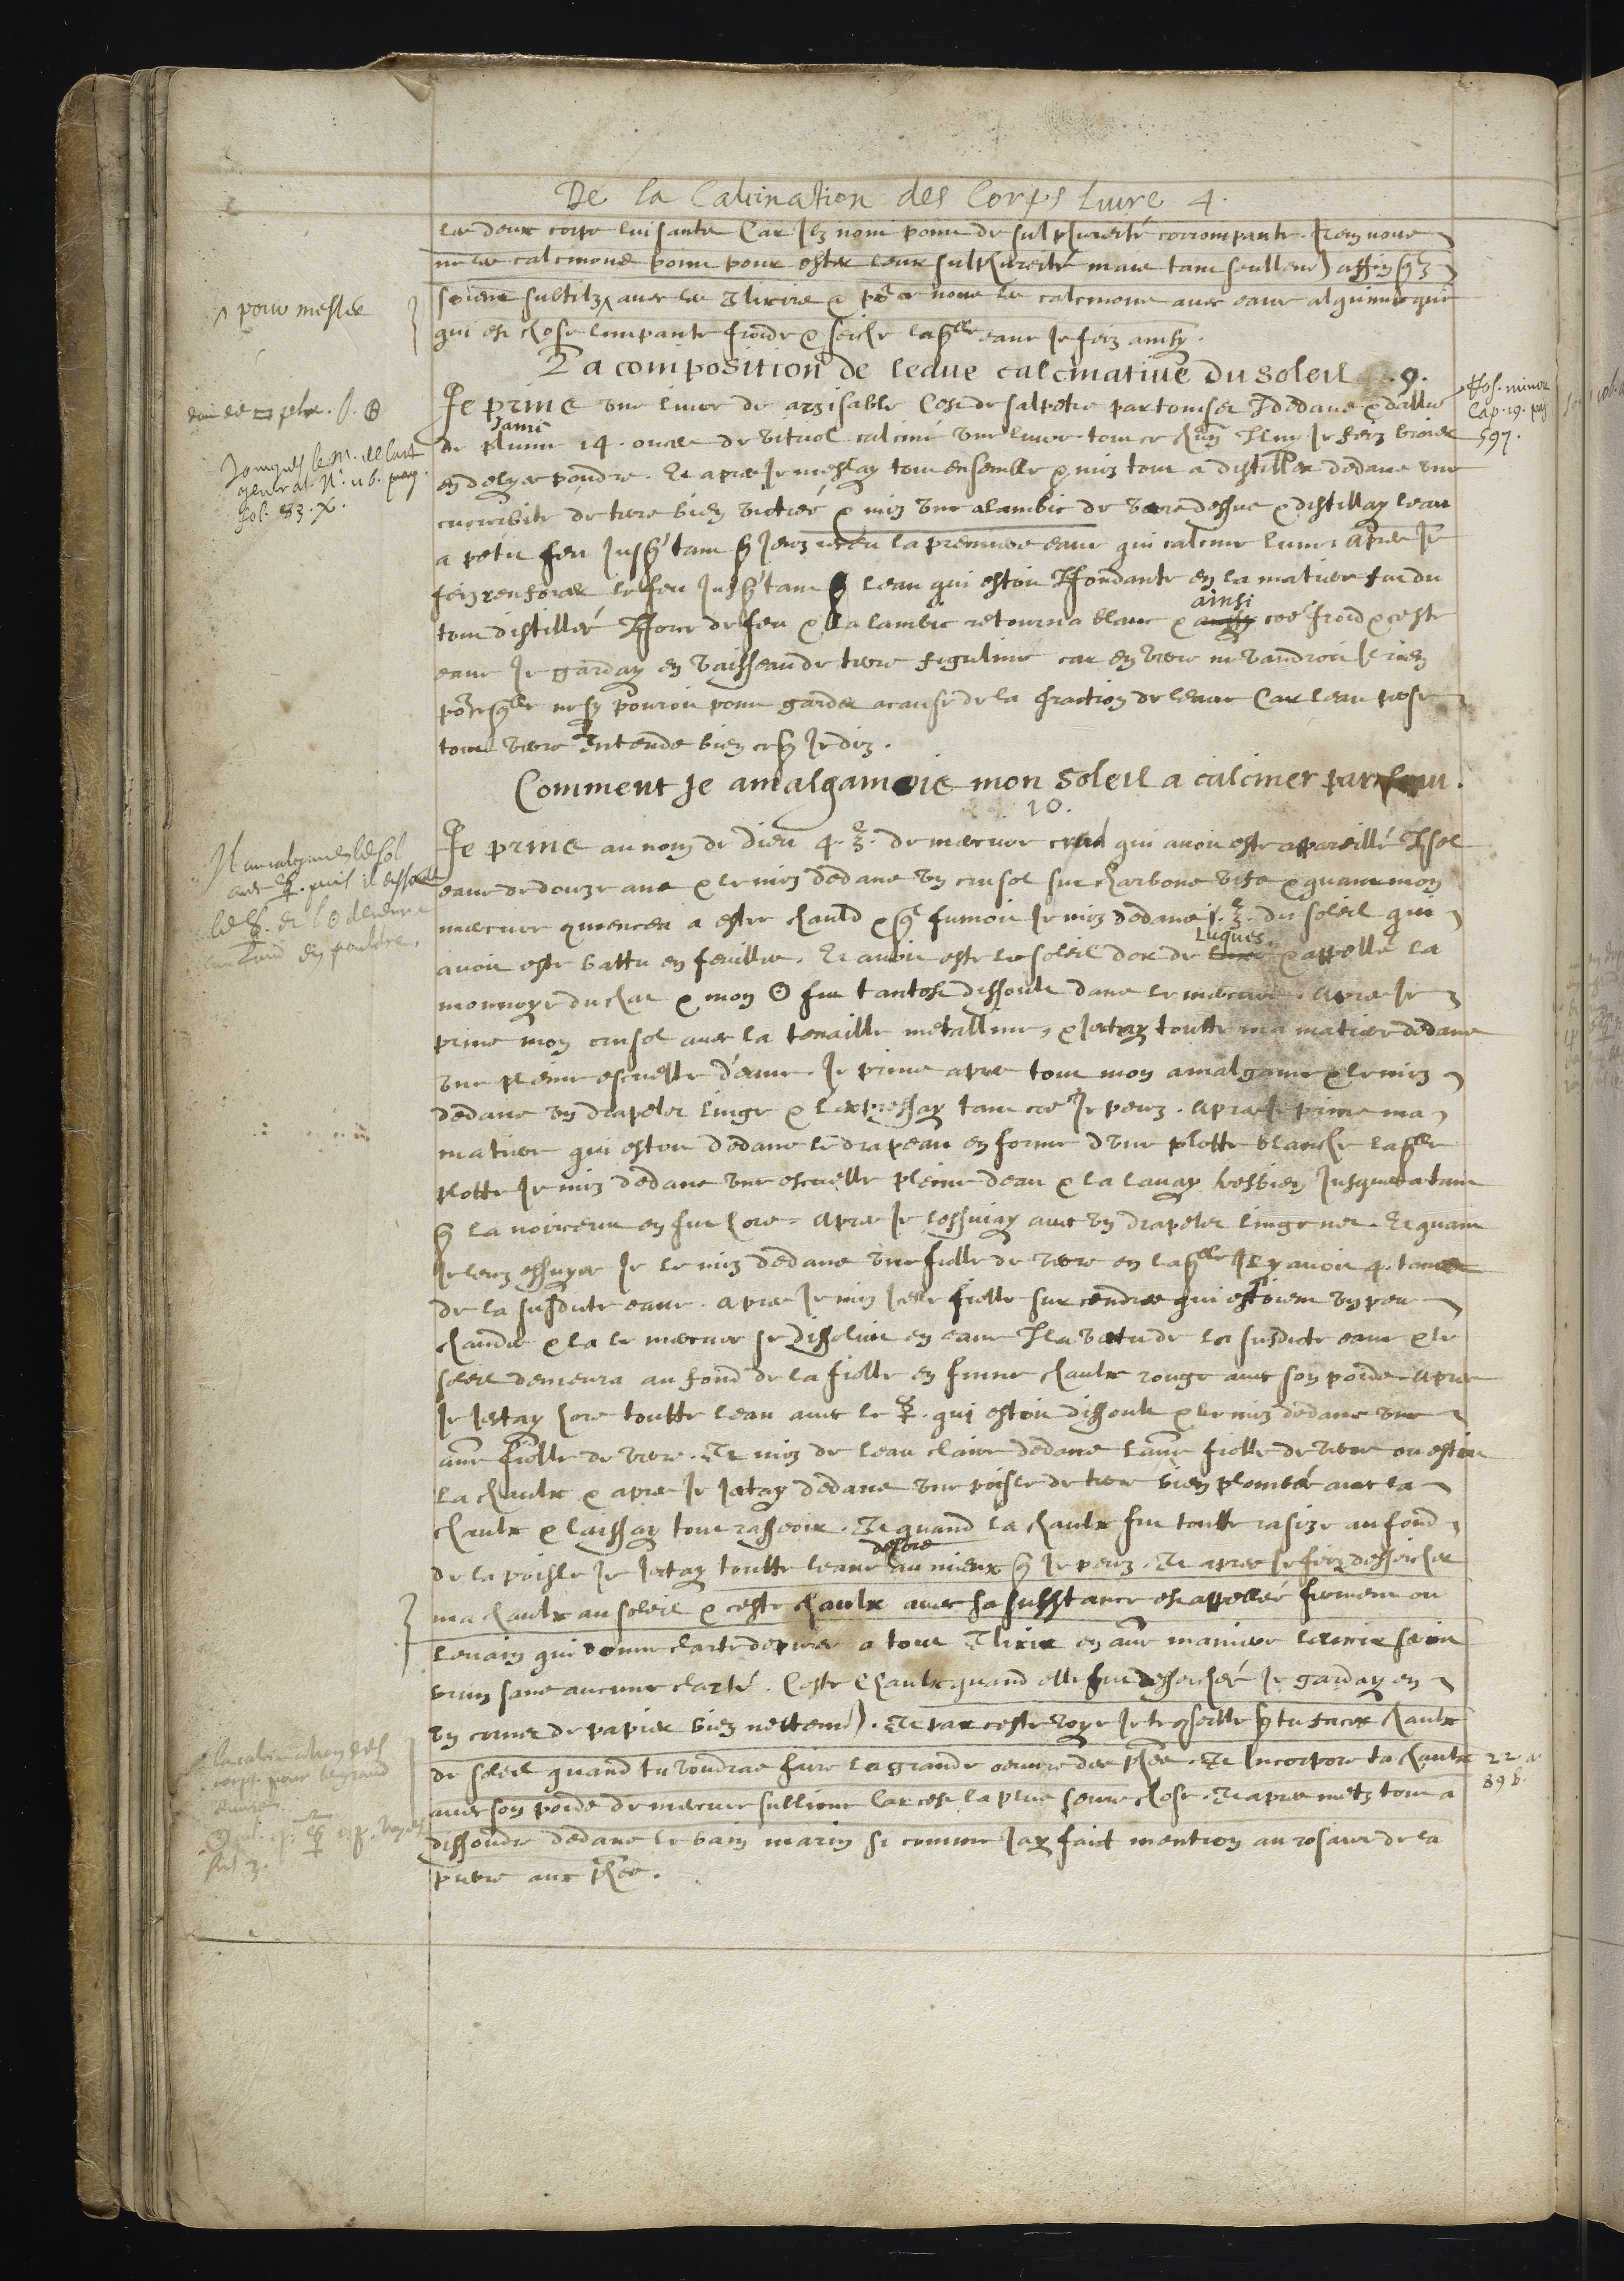 De la Calcination des Corps Livre 4.
les deux corps luisants Car Ilz nont point de sulphureité corrompante. Item nous
ne les calcinons point pour oster leur sulphureité mais tant seullemt affin qlz
soient subtilz ^ avec les Elixirs & pour ce nous les calcinons avec eaue alquimicque
^ pour mesler
qui est chose limpante froide & seiche laqlle eaue Je feiz ainsy.
La composition de leaue calcinative du soleil .9.
Je prins une livre de arzisable Cest de salpetre par tonser I dedans & dallun
de plume 14. onces de vitriol calciné une livre. tout ce
Jami
en delyee poudre. Et apres Je meslay tout ensemble & mis tout a distiller dedans une
cucurbite de terre bien victreé & mis une alambic de verre dessus & distillay leau
a petit feu Jusqs tant q Jeuz receu la premiere eaue qui calcine lune. apres Je
feiz renforcer le feu Jusqs tant q leau qui estoit Ffondante en la matiere fut du
tout distilleé Ffors de feu & lalambic retourna blanc & ainsi coe froid & ceste
eaue Je garday en vaisseau de terre figuline car en verre ne vaudroit rien
pource qlle ne sy pouroit point garder a cause de la fraction de leaue Car leau perse
tout verre Entends bien ce q Je diz.
Comment Je amalgamois mon soleil a calciner par leau.
10.
Je prins au nom de dieu 4. ℥. de mercure crud qui avoit esté appareillé
eaue de douze ans & le mis dedans un crusol sur charbons vifz & quant mon
mercure commencea a estre chauld & ql fumoit Je mis dedans 1. ℥. du soleil qui
avoit esté battu en feuilles. Et avoit esté le soleil dor de Luques & appellé la
monnoye ducat & mon ☉ fut tantost dissoult dans le mercure. apres Je
prins mon crusol avec la tenaille metalline, & Jectay toutte ma matiere dedans
une pleine escuelle d'eaue. Je prins apres tout mon amalgame & le mis
dedans un drapelet linge & lexpressay tant coe Je peuz. apres Je prins ma
matiere qui estoit dedans le drapeau en forme dune plotte blanche laqlle
plotte Je mis dedans une escuelle pleine deau & la lavay tresbien Jusques a tant
q la noirceur en fut hors. apres Je lessuiay avec un drapelet linge net. Et quant
Je leuz essuyee Je le mis dedans une fiolle de verre en laqlle Il y avoit 4. tant
de la susdicte eaue. apres Je mis Icelle fiolle sur cendres qui estoient un peu
chaudes & la le mercure se dissolut en eaue I la vertu de la susdicte eaue & le
soleil demeura au fond de la fiolle en forme chaulx rouge avec son poids. apres
Je Jectay hors toutte leau avec le ☿. qui estoit dissoult & le mis dedans une
aultre fiolle de verre. Et mis de leau claire dedans laultre fiolle de verre ou estoit
la chaulx & apres Je Jectay dedans une poisle de terre bien plombeé avec la
chaulx & laissay tout rasseoir. Et quand la chaulx fut toutte rasize au fond
de la poisle Je Jectay toutte leaue dehors au mieux q Je peuz. Et apres Je feiz desseicher
ma chaulx au soleil & ceste chaulx avec sa substance est appelleé ferment ou
levain qui donne clarté de puree a tout Elixir en aultre maniere lelixir seroit
brun sans aucune clarté. Ceste Chaulx quand elle fut desseicheé Je garday en
un cornet de papier bien nettemt. Et par ceste voye Je te conseille q tu faces chaulx
de soleil quand tu voudras faire la grande oeuvre des phes. Et Incorpore ta chaulx
avec son poids de mercure sublimé car cest la plus seure chose. Et apres metz tout a
dissoudre dedans le bain marin si comme Jay faict mention au rosaire de la
pierre aux phes.
Jacques le M. de l'art
general. N.° 11 b. pag.
fol. 83. X.
Il amalgame le sol
avec ☿. puis il dissout
le ☿. et l'☉ demeure
au fond en pouldre.
la calcination des
corps pour le grand
œuvre
Ros. minor
Cap. 19. pag
597.
22 a
89 b.